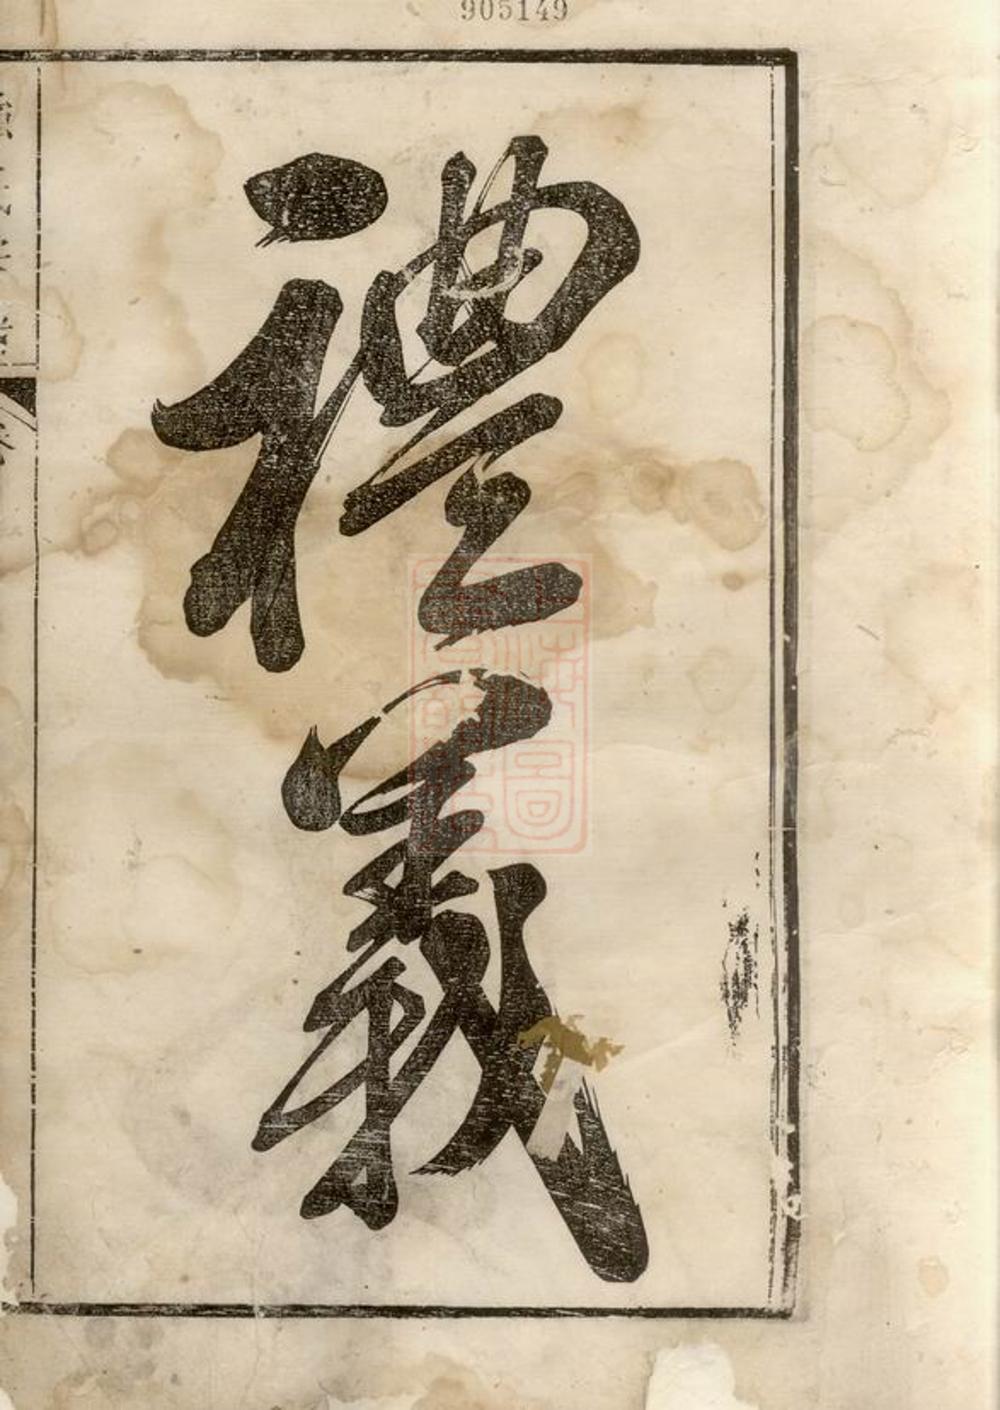 905149
禮
義